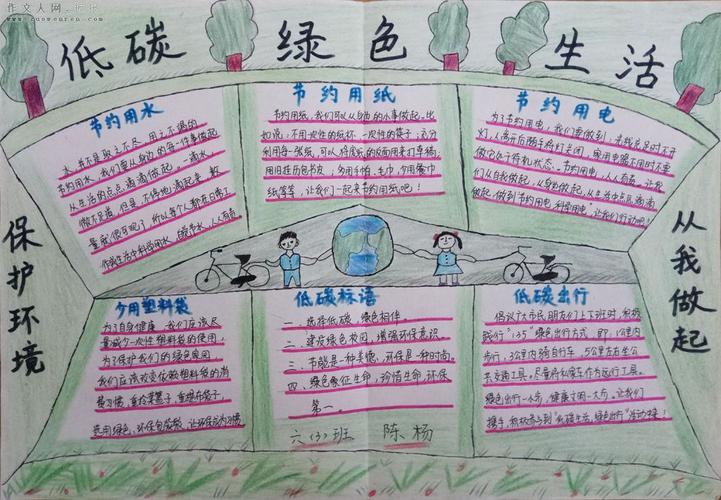 作文人网
低碳 绿色 生活
保护环境
从我做起
节约用水
水并不是取之不尽,用之不竭的
节约用水,我们要从身边的每一件事做起
从生活中的点点滴滴做起。一滴水
微不足道,但是不停地滴起来,数
量就很可观了,所以每个人都在日常工
作和生活中科学用水,
节约用纸
节约用纸,我们可以从身边的小事做起。比
如说:不用一次性的纸杯、一次性的筷子;充分
利用每一张纸,可以将废纸的反面用来打草稿;
用旧挂历包书皮;多用手帕、毛巾,少用餐巾
纸等等,让我们一起来节约用纸吧!
节约用电
为了节约用电,我们要做到:光线充足时不开
灯,人离开后随手将灯关闭,家用电器不用时不要
做它处于待机状态。节约用电,人人有责。让我
们从自我做起,从身边做起,从生活中点点滴滴
做起,做到节约用电,科学用电"让我们行动吧!
少用塑料袋
为了自身健康,我们应该尽
量减少一次性塑料袋的使用!
为了保护我们的绿色家园,
我们应该改变依赖塑料袋的消
费习惯,重拎菜篮子,重提布袋子
选用绿色、环保包装袋,让环保成为习惯
低碳标语
一、选择低碳,绿色相伴。
二、建设绿色校园,增强环保意识。
三、节能是一种美德,环保是一种时尚。
四、绿色象征生命,珍惜生命,环保
第一。
六(3)班 陈杨
低碳出行
倡议广大市民朋友们上下班时,积极
践行"135"绿色出行方式,即:1公里内
步行,3公里内骑自行车,5公里左右坐公
共交通工具。尽量将私家车作为远行工具。
绿色出行一小步,健康文明一大步。让我们
携手,积极参与到"低碳生活,绿色出行"活动中来!